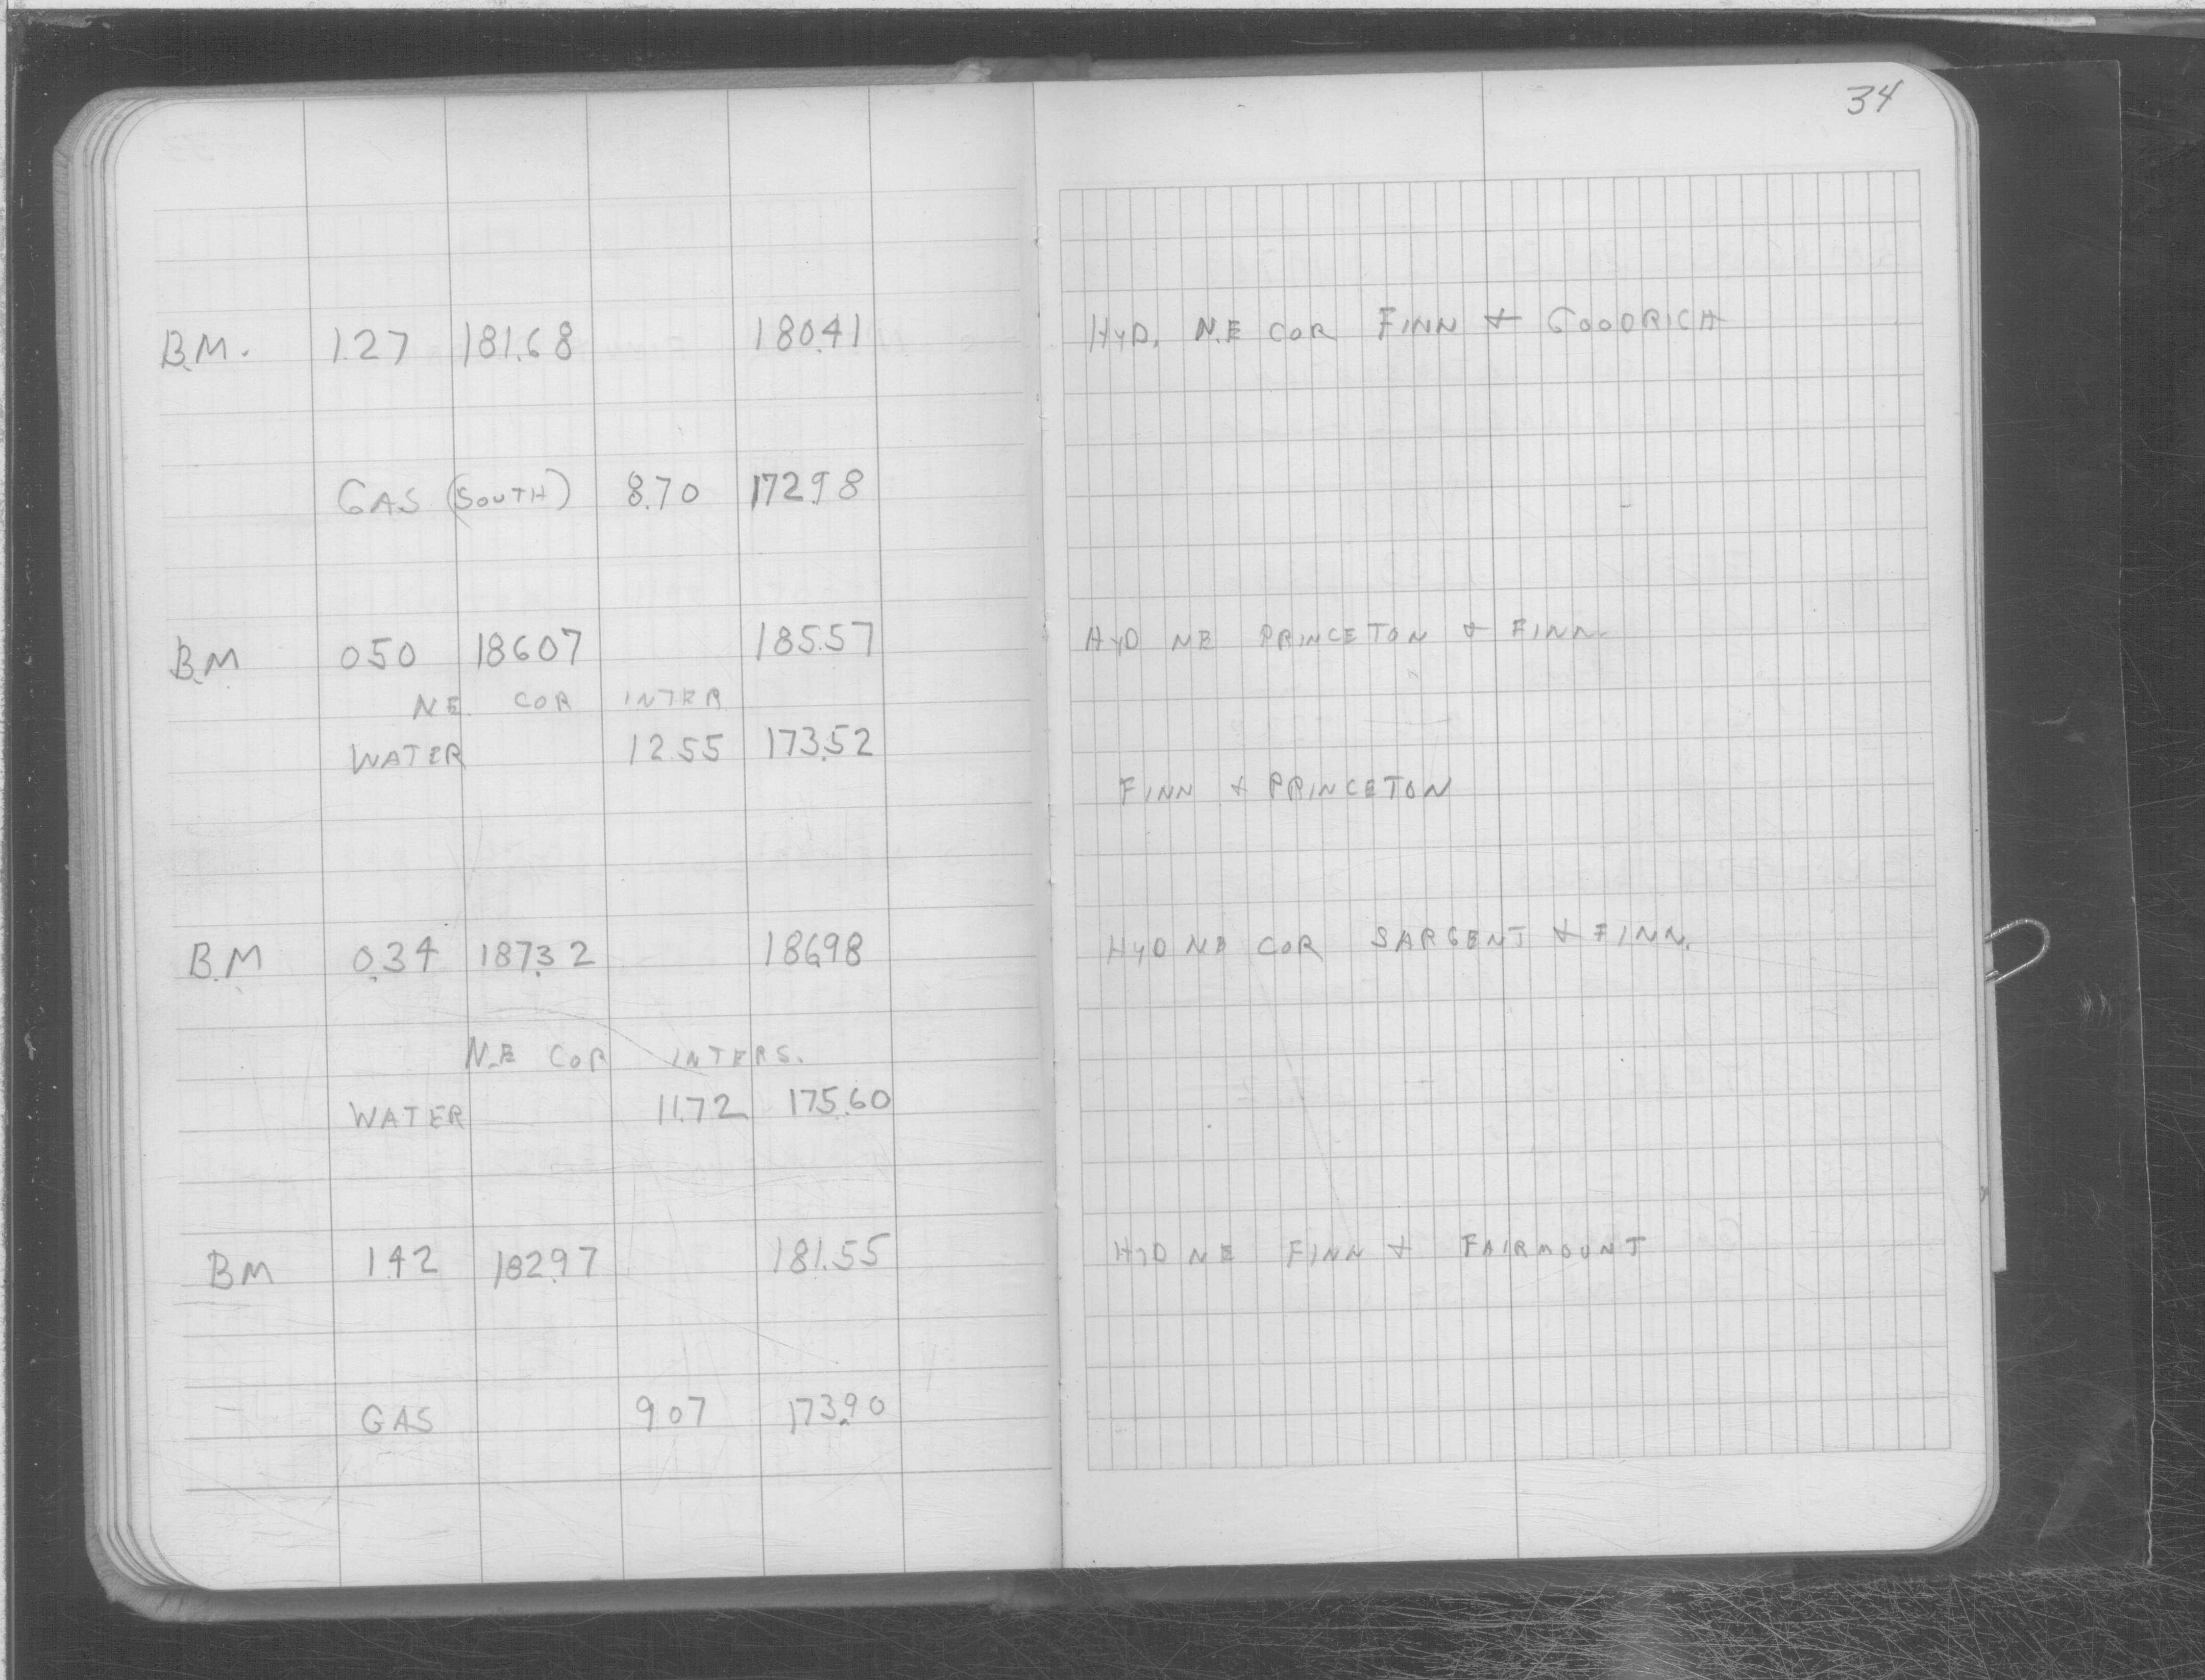 34
B.M. 1.27 181.68 180.41 HYD. N.E COR FINN & GOODRICH
GAS (SOUTH) 8.70 172.98
B.M 0.50 186.07 185.57 HYD NE PRINCETON & FINN.
NE. COR INTER
WATER 12.55 173.52
FINN & PRINCETON
B.M 0.34 187.32 186.98 HYD NE COR SARGENT & FINN.
N.E COR INTERS.
WATER 11.72 175.60
BM 1.42 182.97 181.55 HYD NE FINN & FAIRMOUNT
GAS 9.07 173.90